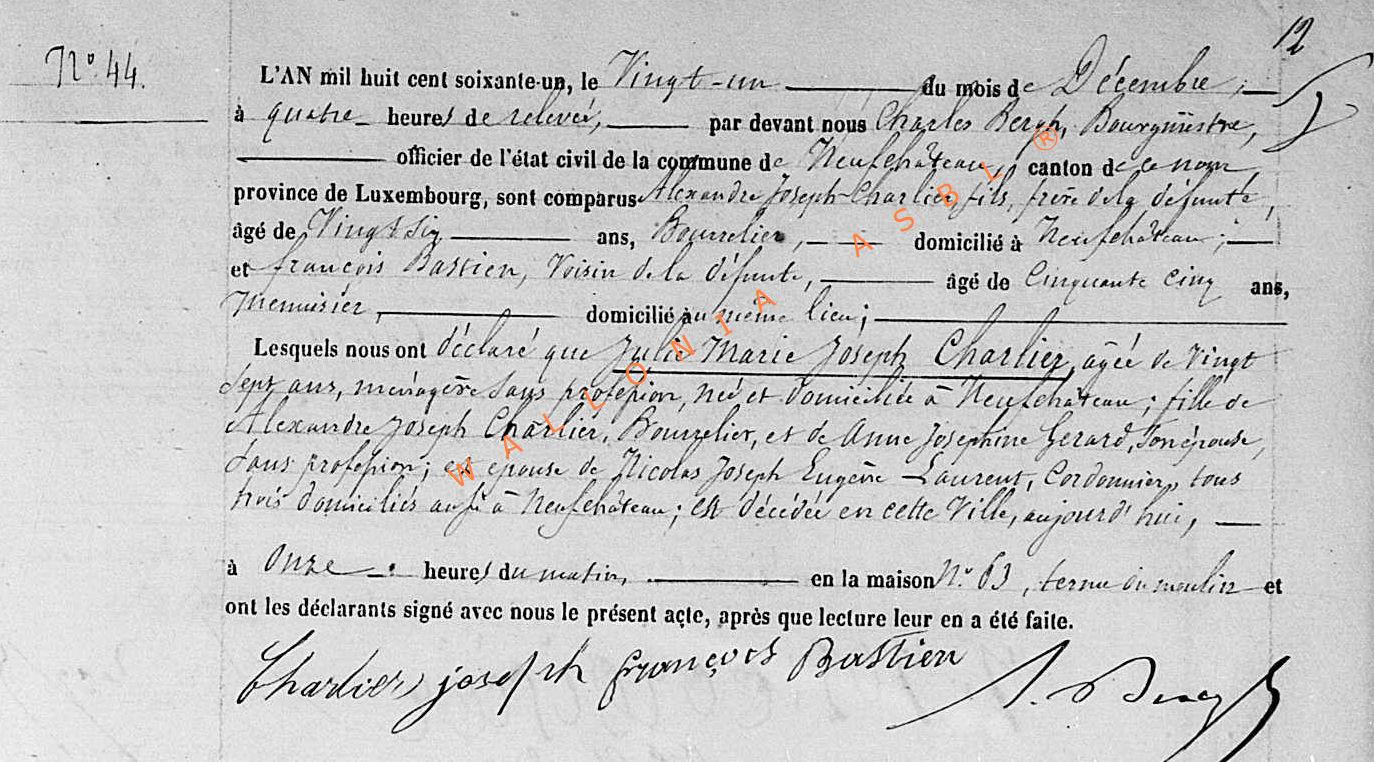 12
N° 44.
L'AN mil huit cent soixante-un, le Vingt-un du mois de Décembre,
à quatre heures de relevée, par devant nous Charles Bergh, Bourgmestre,
officier de l'état civil de la commune de Neufchâteau, canton de ce nom
province de Luxembourg, sont comparus Alexandre Joseph Charlier, fils, frère de la défunte,
âgé de Vingt six ans, Bourrelier, domicilié à Neufchâteau;
et françois Bastien, Voisin de la défunte, âgé de Cinquante cinq ans,
menuisier, domicilié au même lieu;
Lesquels nous ont déclaré que Julie Marie Joseph Charlier, agée de Vingt
sept ans, ménagère sans profession, née et domiciliée à Neufchâteau; fille de
Alexandre Joseph Charlier, Bourrelier, et de Anne Josephine Gerard, son épouse,
sans profession; et epouse de Nicolas Joseph Eugène Laurent, Cordonnier, tous
trois domiciliés aussi à Neufchâteau; est décédée en cette Ville, aujourd'hui,
à Onze heures du matin, en la maison N° 63, terme du moulin et
ont les déclarants signé avec nous le présent acte, après que lecture leur en a été faite.
Charlier joseph françois Bastien
WALLONIA ASBL ®